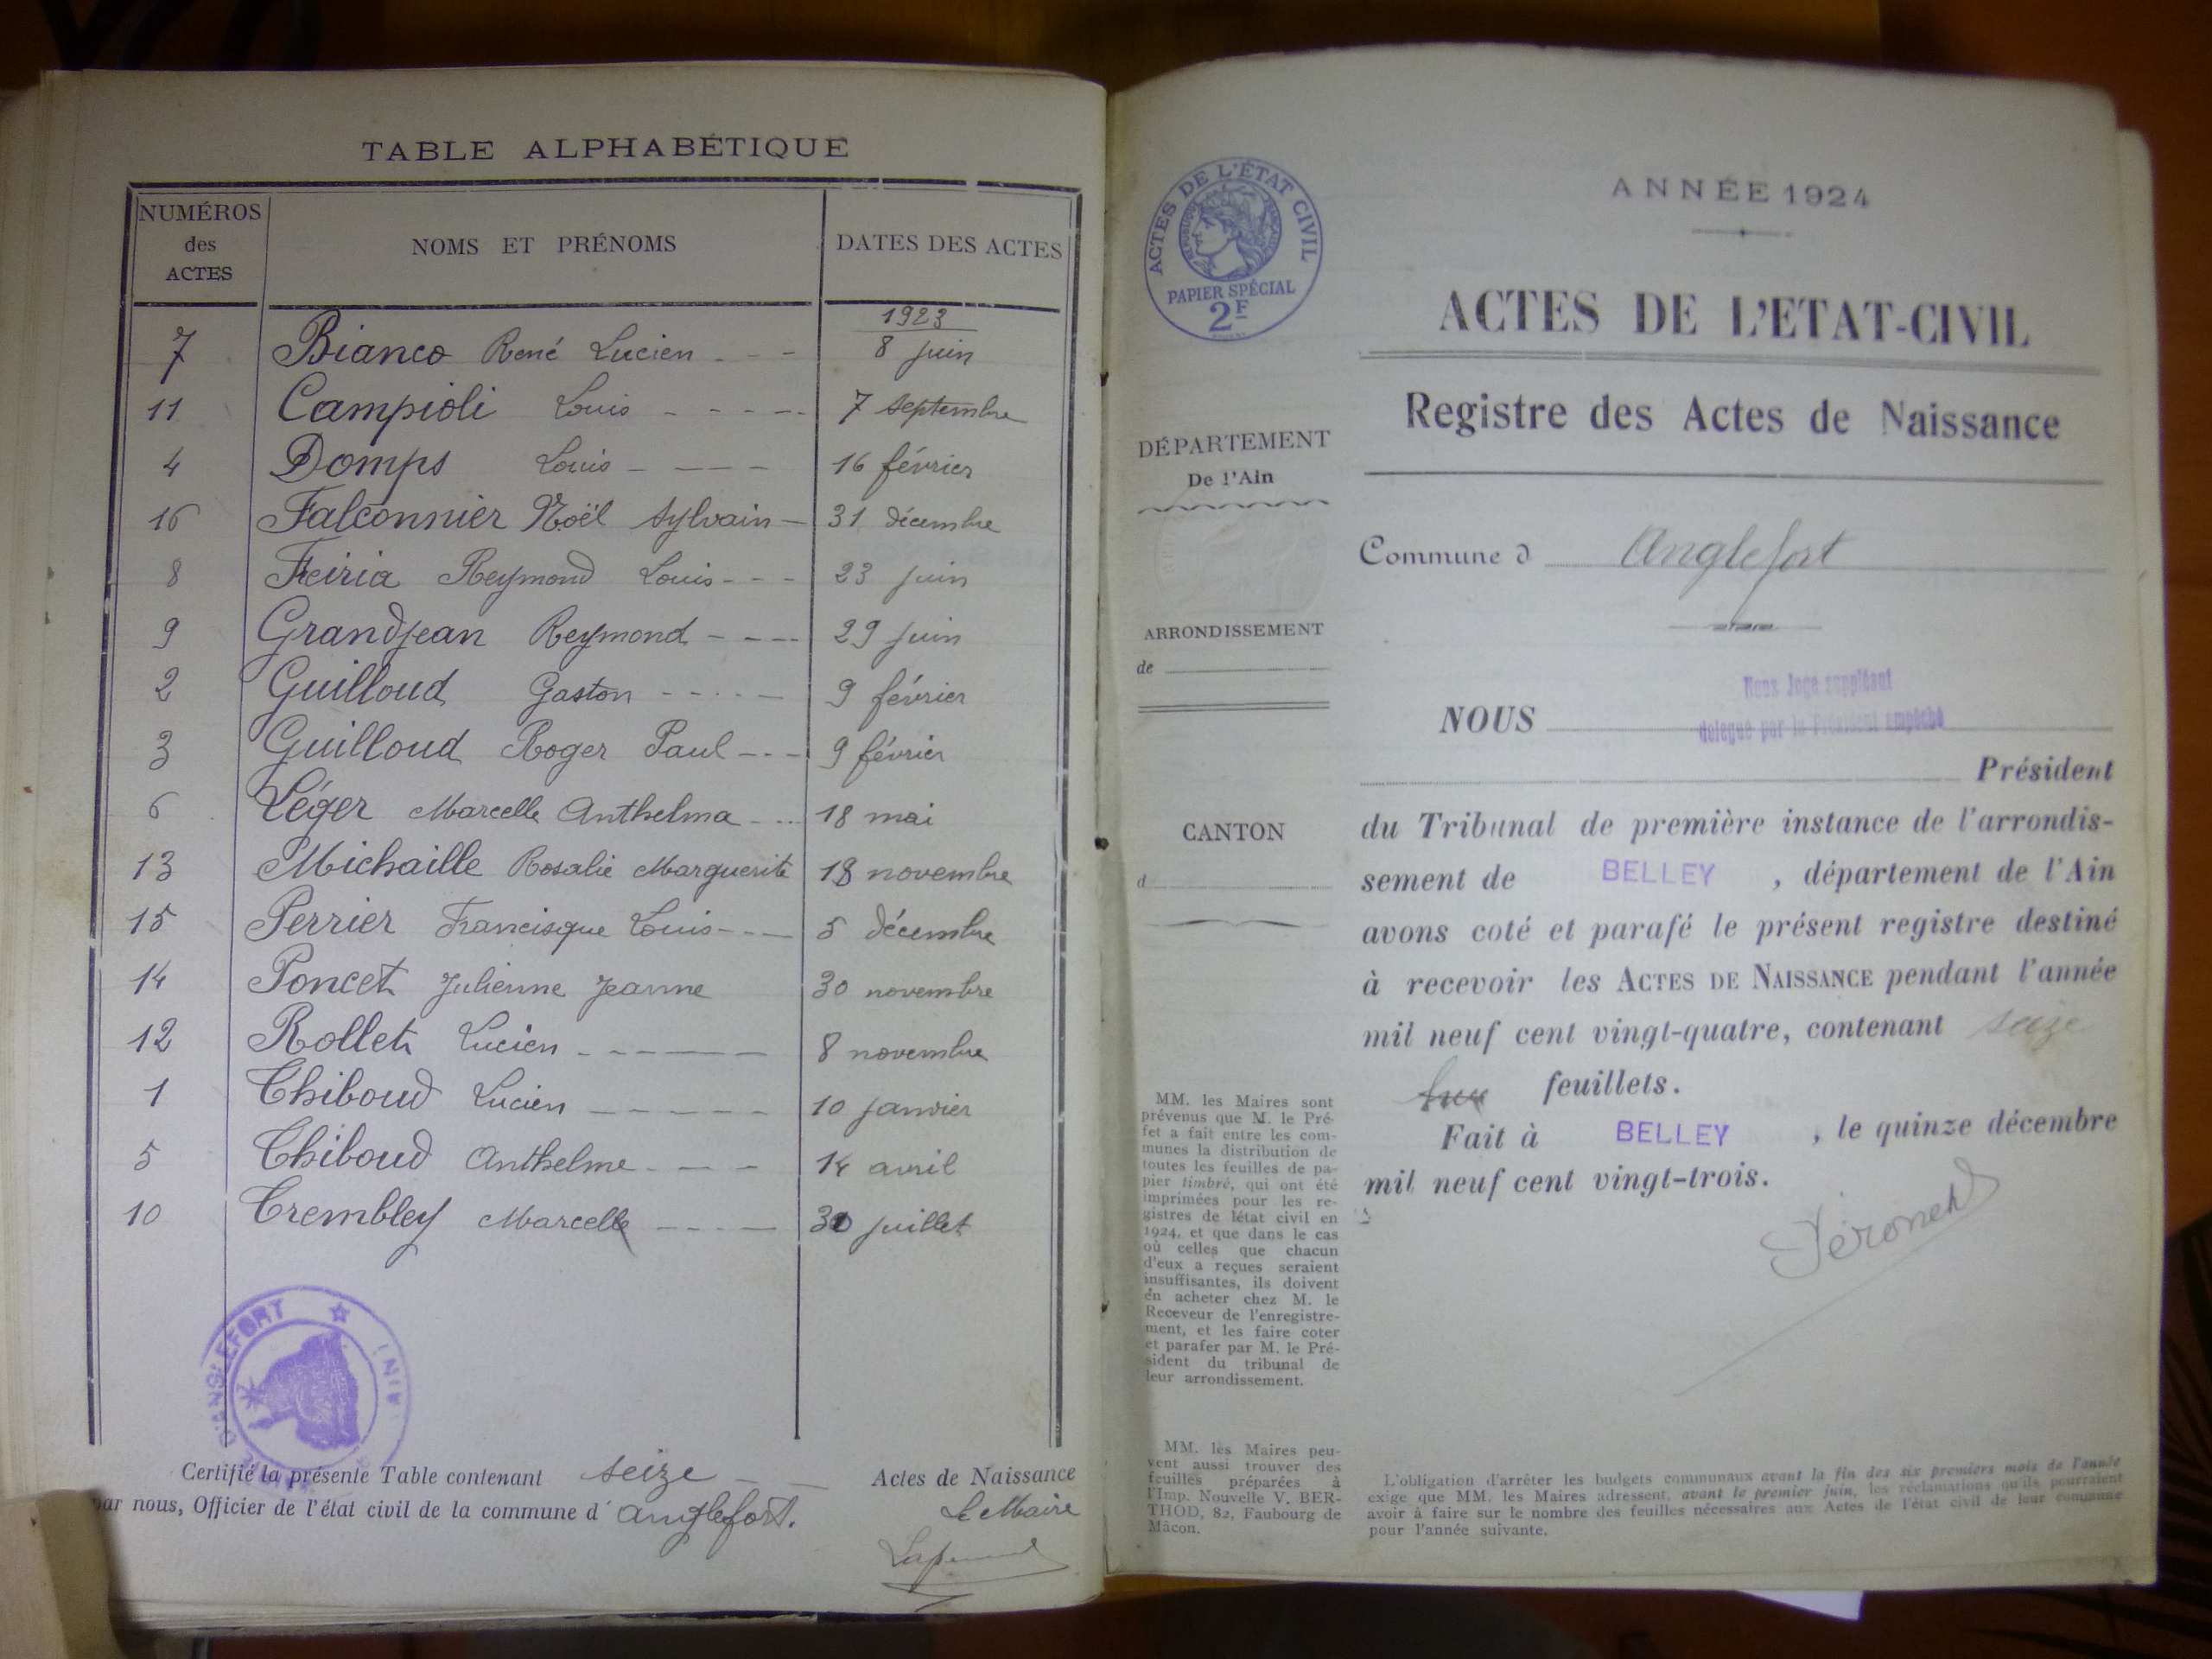 TABLE ALPHABÉTIQUE
NUMÉROS
des
ACTES
NOMS ET PRÉNOMS
DATES DES ACTES
1923
7 Bianco René Lucien - - - 8 juin
11 Campioli Louis - - - - - 7 septembre
4 Domps Louis - - - - 16 février
16 Falconnier Noël Sylvain - 31 décembre
8 Feiria Reymond Louis - - - 23 juin
9 Grandjean Reymond - - - - 29 juin
2 Guilloud Gaston - - - - - 9 février
3 Guilloud Roger Paul - - - 9 février
6 Léger Marcelle Anthelma - - - 18 mai
13 Michaille Rosalie Marguerite 18 novembre
15 Perrier Francisque Louis - - - 5 décembre
14 Poncet Julienne Jeanne 30 novembre
12 Rollet Lucien - - - - - - 8 novembre
1 Thiboud Lucien - - - - - 10 janvier
5 Thiboud Anthelme - - - 14 avril
10 Trembley Marcelle - - - - 30 juillet
D'ANGLEFORT
(AIN)
Certifié la présente Table contenant seize Actes de Naissance
par nous, Officier de l'état civil de la commune d' Anglefort.
Le Maire
ACTES DE L'ÉTAT CIVIL
RÉPUBLIQUE FRANÇAISE
PAPIER SPÉCIAL
2F
DÉPARTEMENT
De l'Ain
ARRONDISSEMENT
de
CANTON
d
MM. les Maires sont
prévenus que M. le Pré-
fet a fait entre les com-
munes la distribution de
toutes les feuilles de pa-
pier timbré, qui ont été
imprimées pour les re-
gistres de létat civil en
1924, et que dans le cas
où celles que chacun
d'eux a reçues seraient
insuffisantes, ils doivent
en acheter chez M. le
Receveur de l'enregistre-
ment, et les faire coter
et parafer par M. le Pré-
sident du tribunal de
leur arrondissement.
MM. les Maires peu-
vent aussi trouver des
feuilles préparées à
l'Imp. Nouvelle V. BER-
THOD, 82, Faubourg de
Mâcon.
ANNÉE 1924
ACTES DE L'ETAT-CIVIL
Registre des Actes de Naissance
Commune d Anglefort
Nous Juge suppléant
NOUS délégué par le Président empêché
Président
du Tribunal de première instance de l'arrondis-
sement de BELLEY , département de l'Ain
avons coté et parafé le présent registre destiné
à recevoir les ACTES DE NAISSANCE pendant l'année
mil neuf cent vingt-quatre, contenant seize
feuillets.
Fait à BELLEY , le quinze décembre
mil neuf cent vingt-trois.
L'obligation d'arrêter les budgets communaux avant la fin des six premiers mois de l'année
exige que MM. les Maires adressent, avant le premier juin, les réclamations qu'ils pourraient
avoir à faire sur le nombre des feuilles nécessaires aux Actes de l'état civil de leur commune
pour l'année suivante.